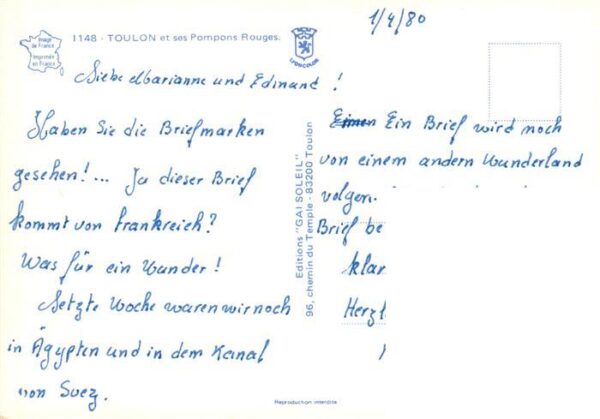 1/4/80
Image de France
Imprimée en France
1148 - TOULON et ses Pompons Rouges.
LYONCOLOR
Liebe Marianne und Edmund !
Haben Sie die Briefmarken
gesehen!... Ja dieser Brief
kommt von Frankreich?
Was für ein Wunder!
Letzte Woche waren wir noch
in Ägypten und in dem Kanal
von Suez.
Editions "GAI SOLEIL"
96, chemin du Temple - 83200 Toulon
Ein Brief wird noch
von einem andern Wunderland
volgen.
Brief be
klar
Herzl
Reproduction interdite